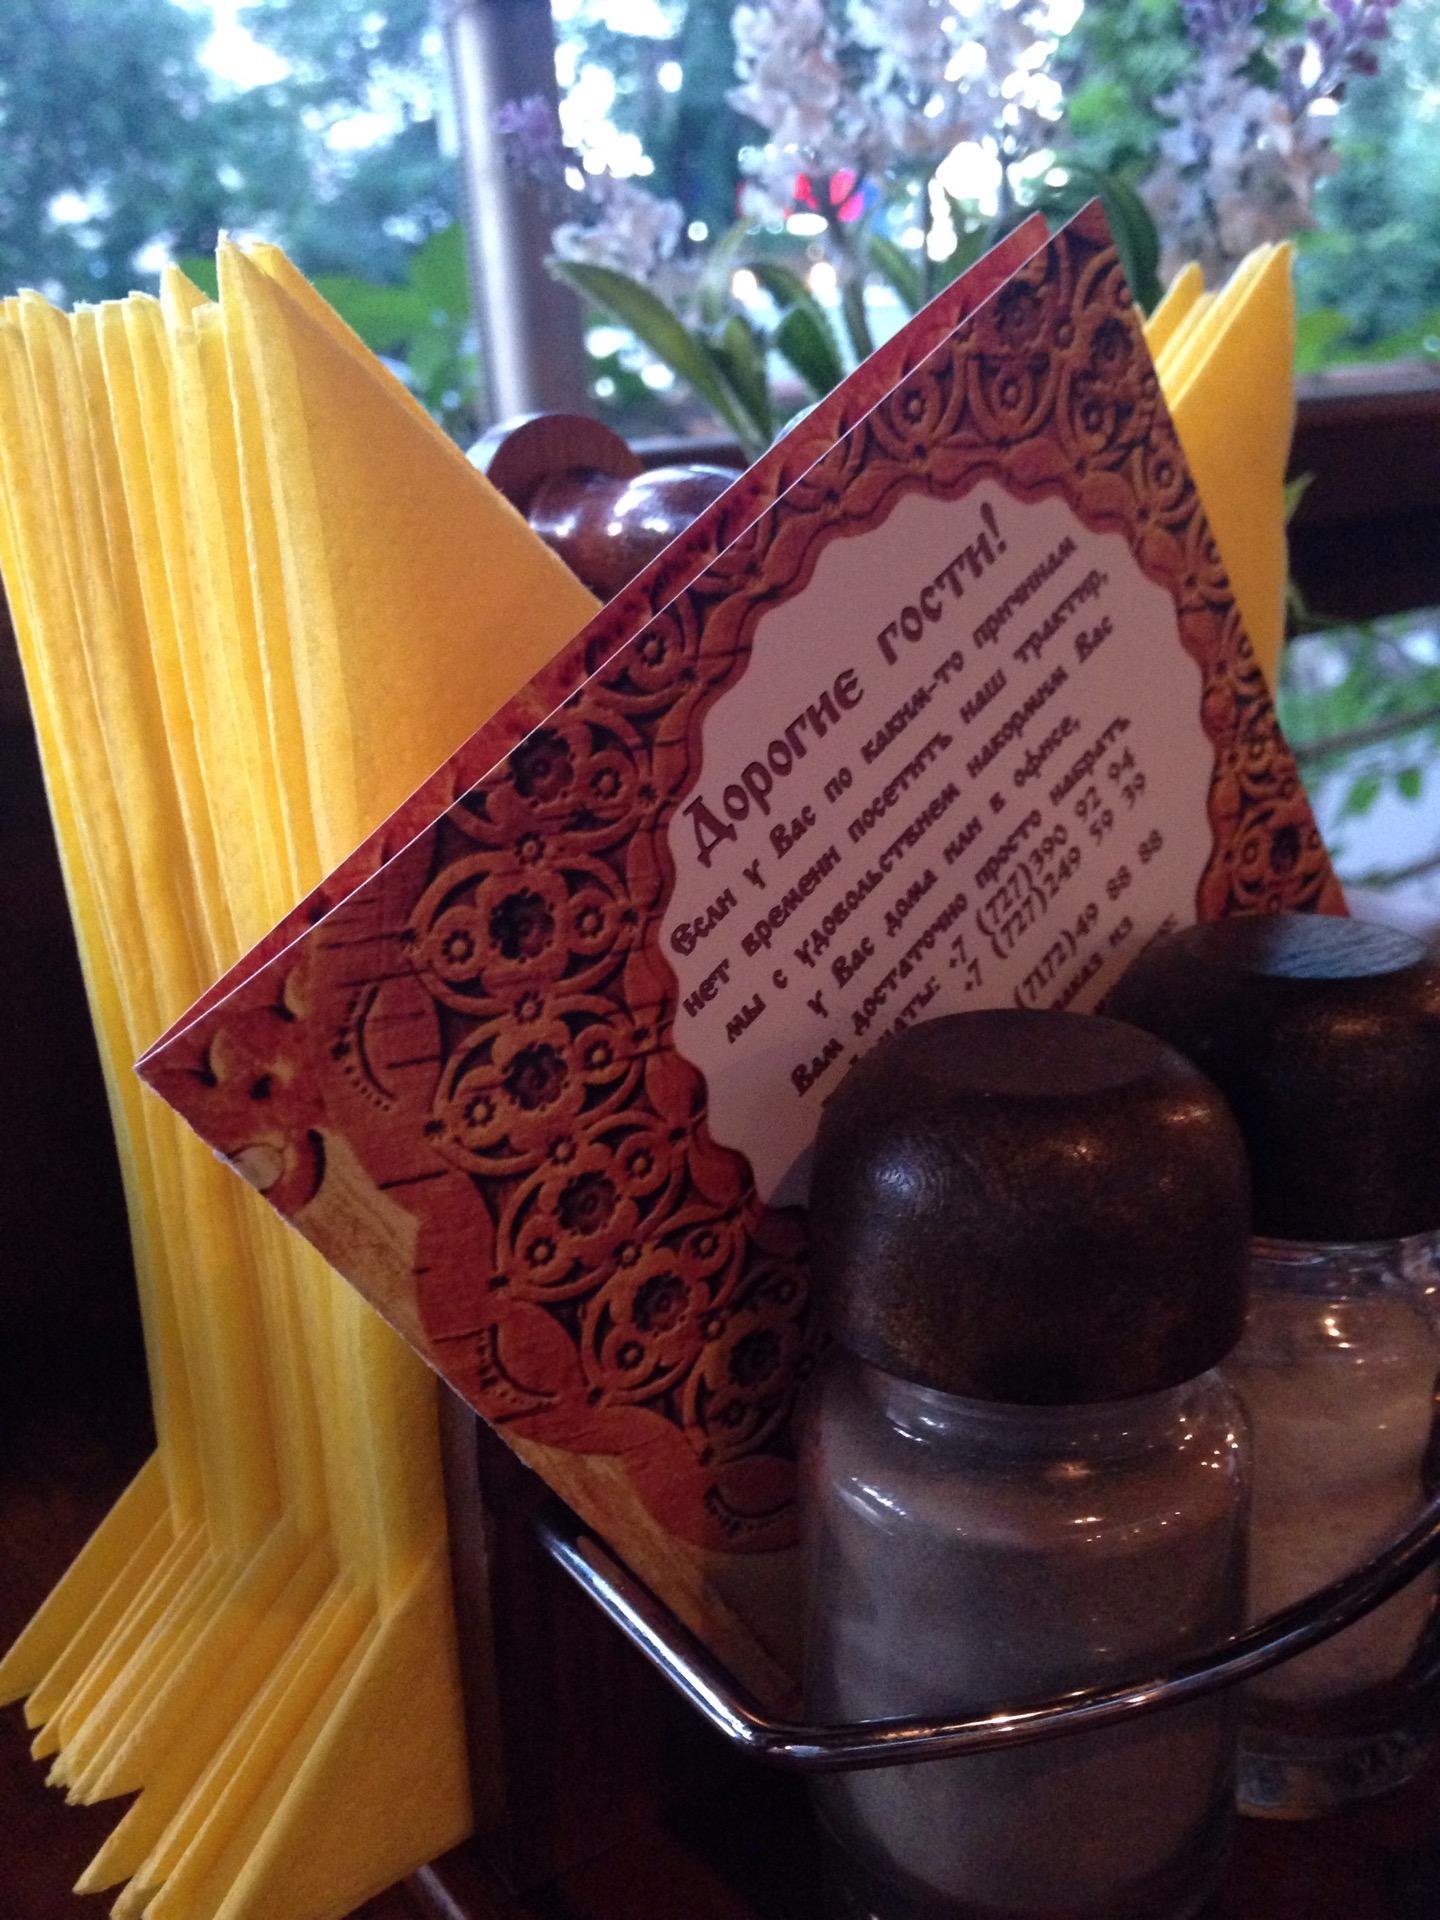 Дорогие гости!
Если у Вас по каким-то причинам
нет времени посетить наш трактир,
мы с удовольствием накормим Вас
у Вас дома или в офисе,
Вам достаточно просто набрать
+7 (727)390 92 94
+7 (727)249 59 39
(7172)49 88 88
заказ из